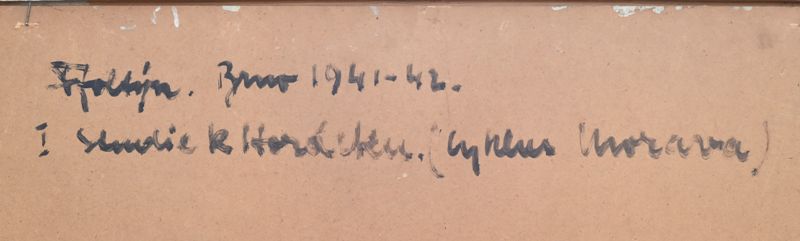 Fjoltýn. Brno 1941-42.
I studie k Horácku. (cyklus Morava)